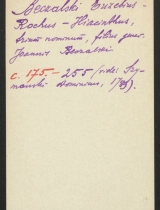 Beczalski Euzebius-
Rochus - Hiacinthus,
trium nominum, filius gener.
Joannis Beczalski.
c. 175. - 255 (vide: Szy-
manski Dominicus,